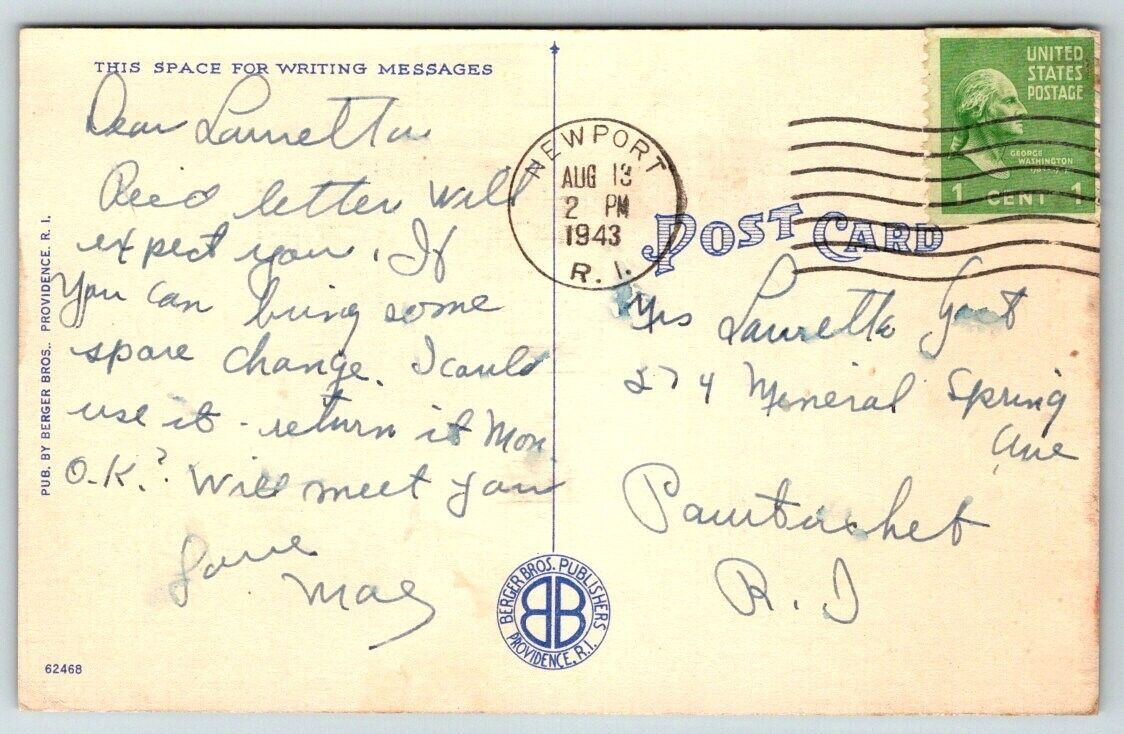 THIS SPACE FOR WRITING MESSAGES
Dear Lauretta
Rec'd letter will
expect you. If
you can bring some
spare change. I could
use it - return it Mon.
O.K.? Will meet you
Love
Mae
62468
PUB. BY BERGER BROS., PROVIDENCE, R. I.
BERGER BROS. PUBLISHERS
PROVIDENCE, R.I.
BB
NEWPORT
AUG 13
2 PM
1943
R. I.
UNITED
STATES
POSTAGE
GEORGE
WASHINGTON
1 CENT 1
POST CARD
Lauretta
274 Mineral Spring
Ave
Pawtucket
R. I